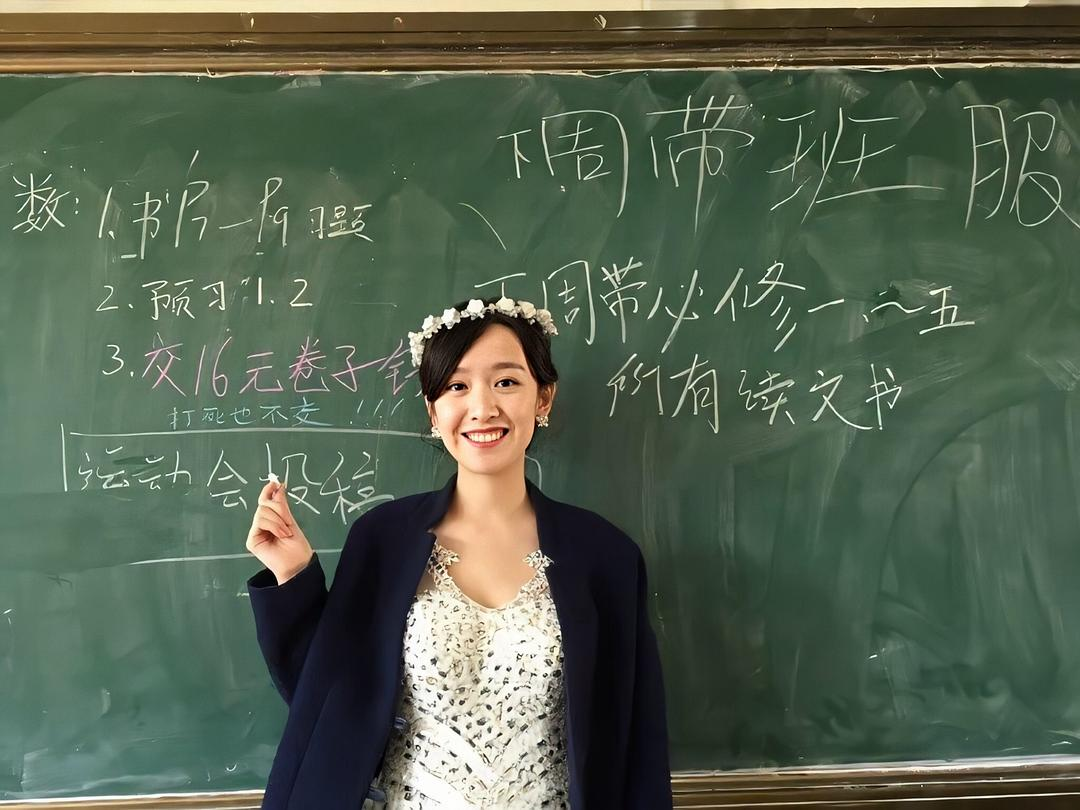 数: 1. 书P7-P9 习题
2. 预习 1.2
3. 交16元卷子钱
打死也不交!!!
运动会投稿
下周带班服
下周带必修一、~五
所有读文书